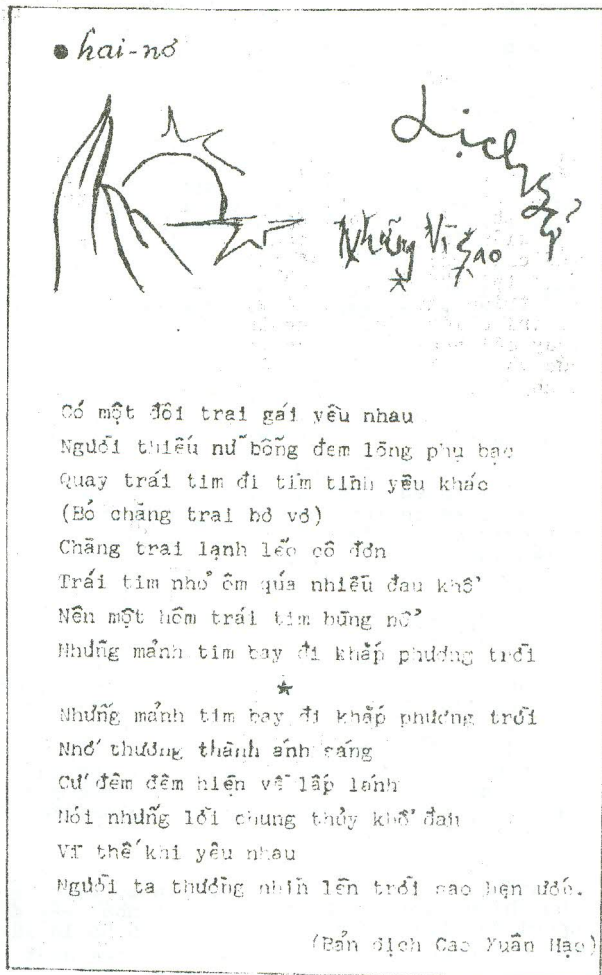 hai-nơ
Lịch Sử
Những Vì Sao
Có một đôi trai gái yêu nhau
Người thiếu nữ bỗng đem lòng phụ bạc
Quay trái tim đi tìm tình yêu khác
(Bỏ chàng trai bơ vơ)
Chàng trai lạnh lẽo cô đơn
Trái tim nhỏ ôm qúa nhiều đau khổ
Nên một hôm trái tim bùng nổ
Những mảnh tim bay đi khắp phương trời
Những mảnh tim bay đi khắp phương trời
Nhớ thương thành ánh sáng
Cứ đêm đêm hiện về lấp lánh
Nói những lời chung thủy khổ đau
Vì thế khi yêu nhau
Người ta thường nhìn lên trời sao hẹn ước.
(Bản dịch Cao Xuân Hạo)